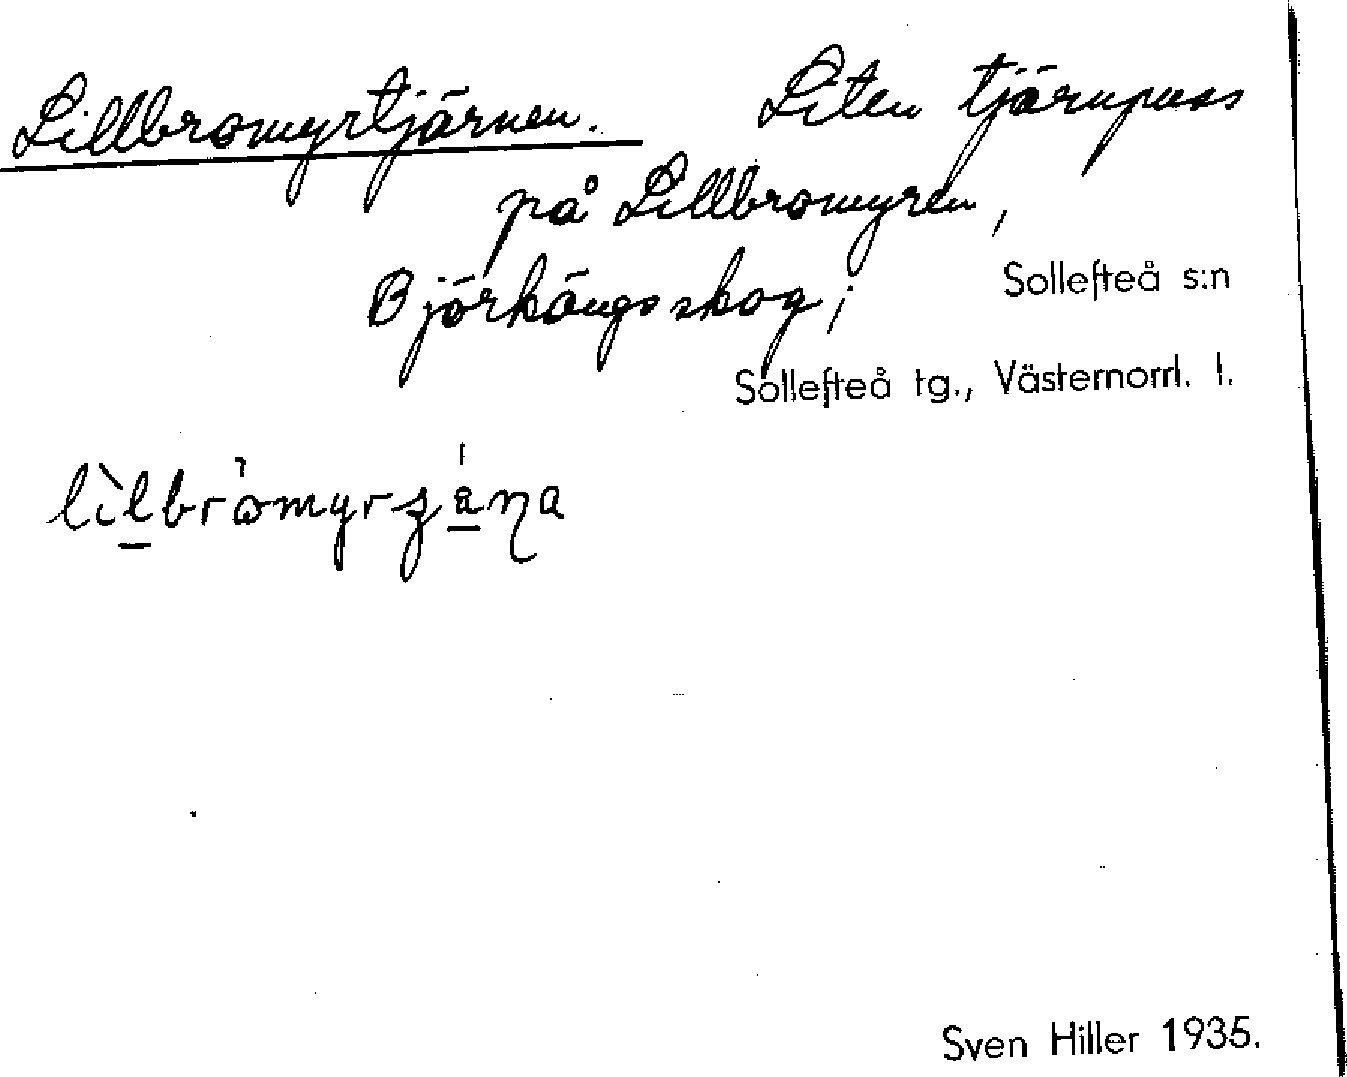 Lillbromyrtjärnen. Liten tjärnpuss
på Lillbromyren,
Björkängsskog; Sollefteå s:n
Sollefteå tg., Västernorrl. l.
Sven Hiller 1935.